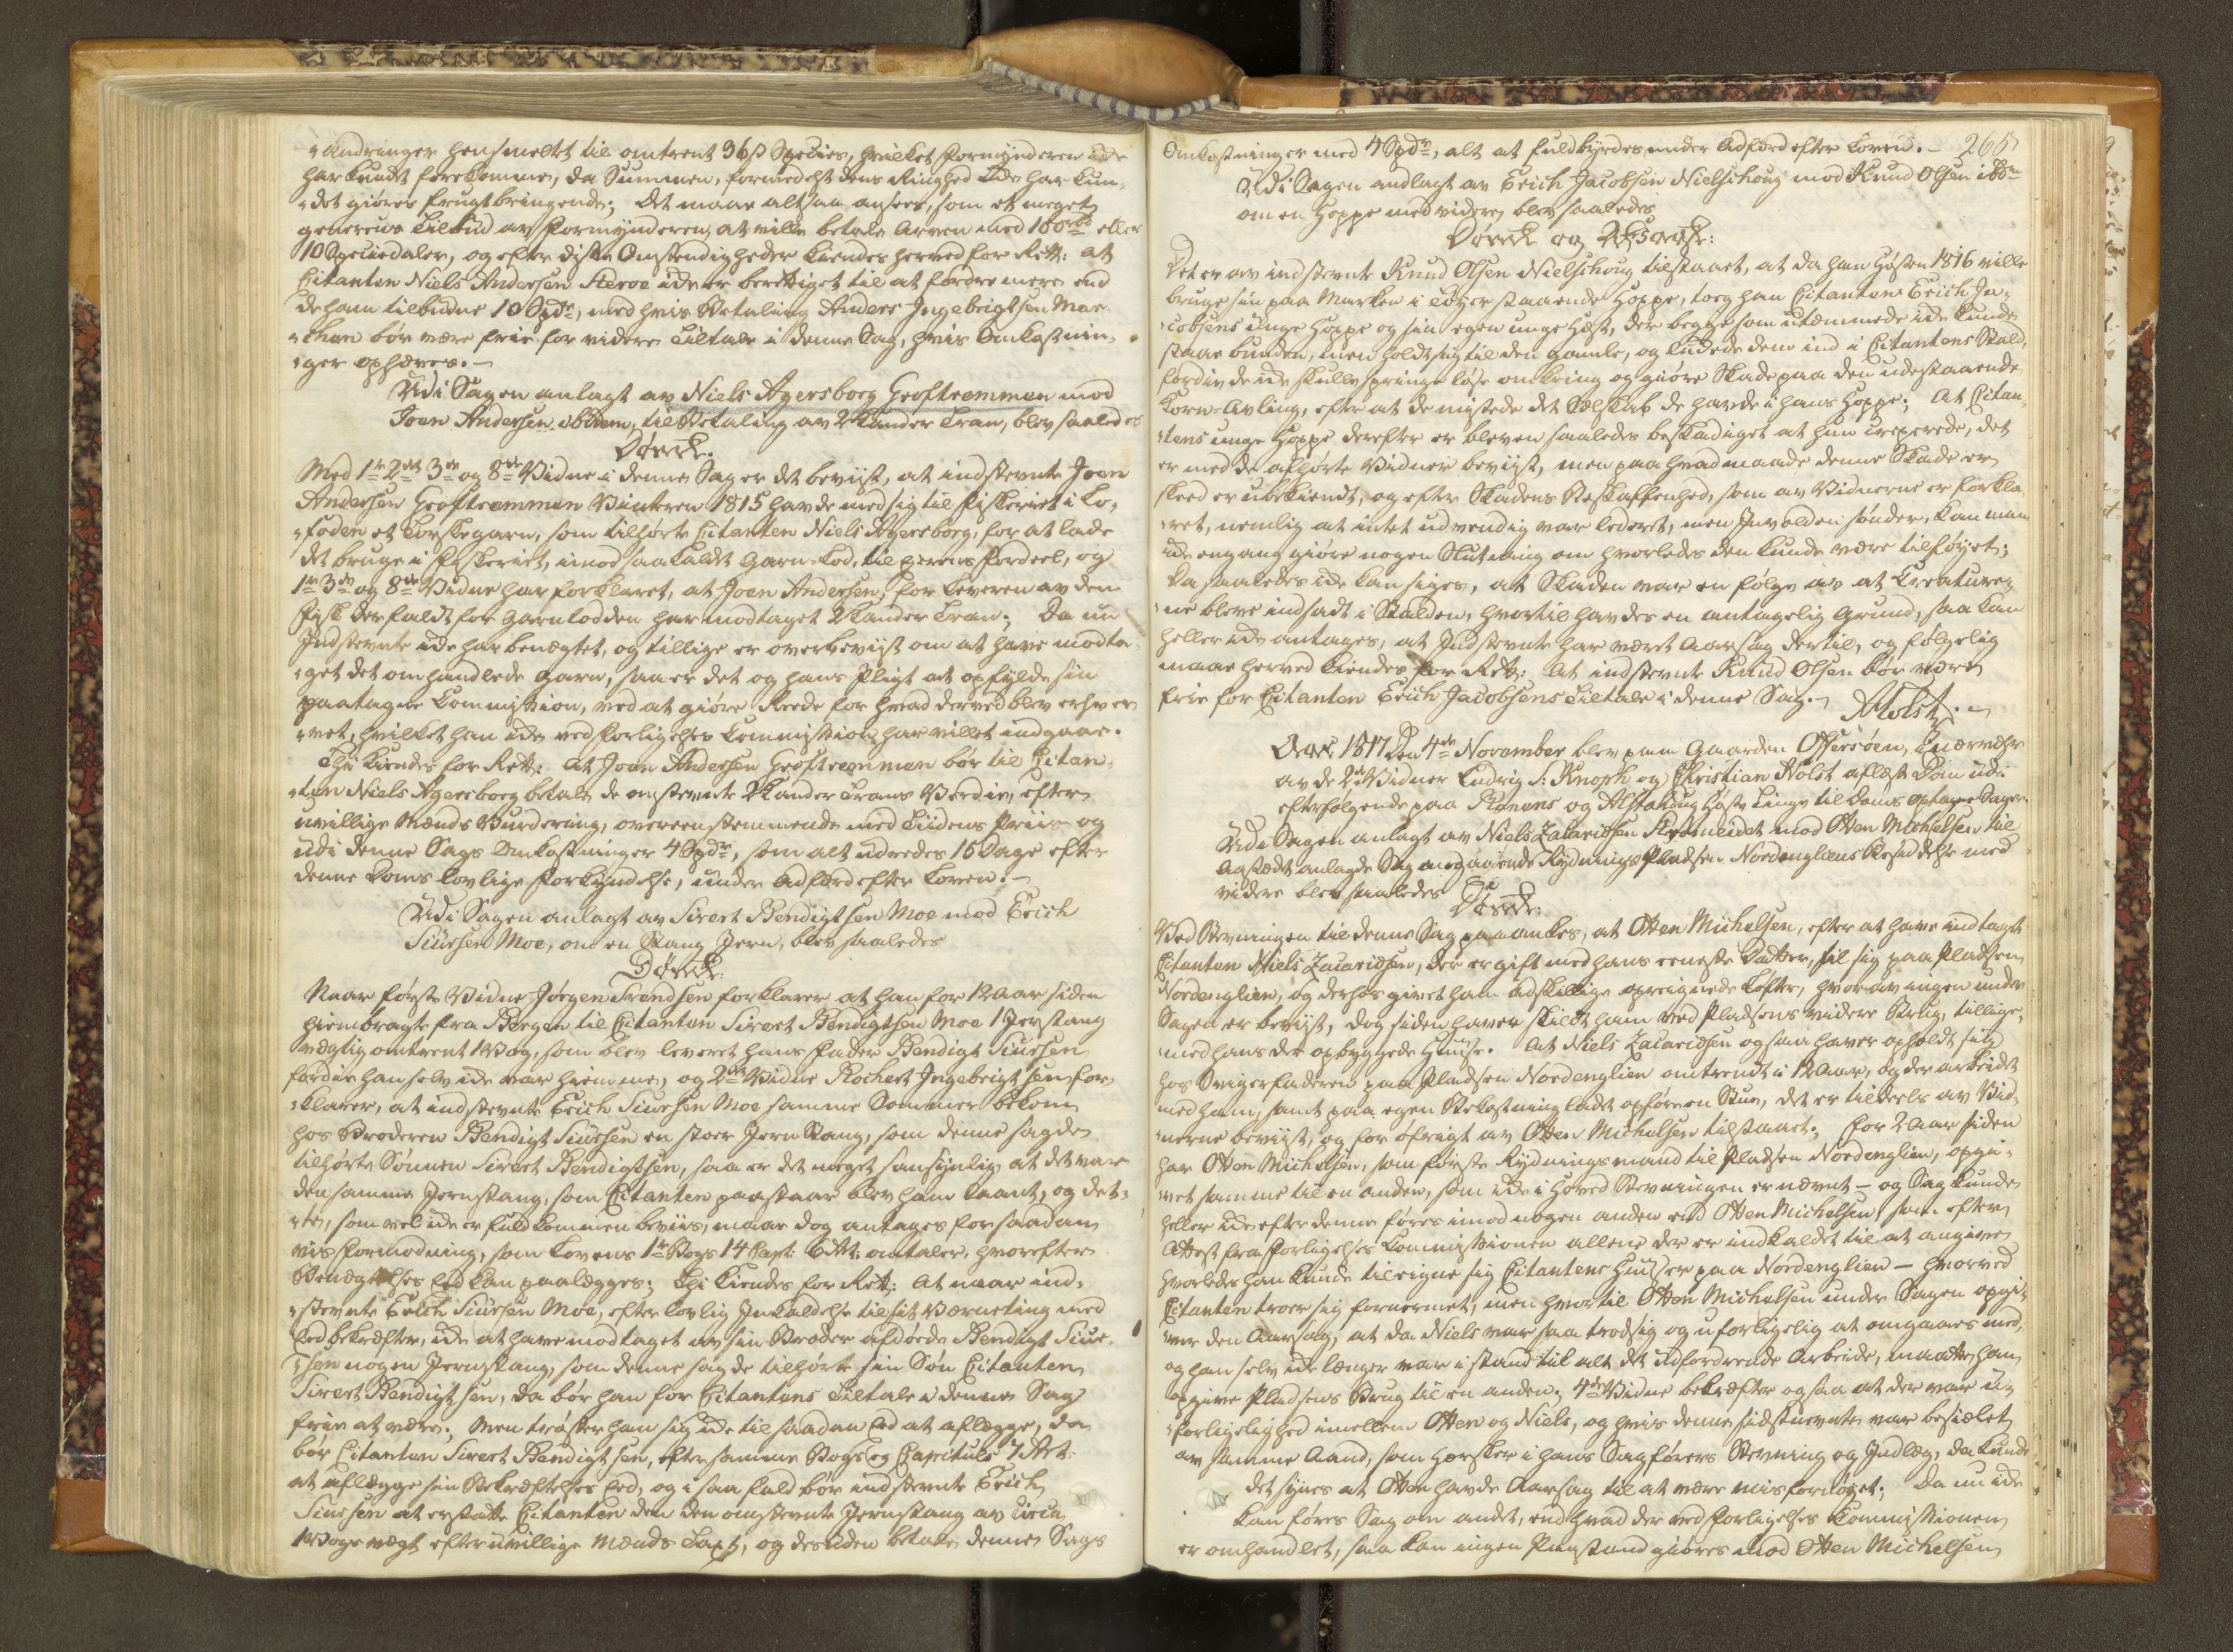 -andringer hensmeltet til omtrent 96 s Species, hvilket Formynderen ide
har kundt forekomme, da Summen, formedelst dens Ringhed ide har kun-
-det giøres frugtbringende; Det maae altsaa ansees, som et meget
genereus Tilbud av Formynderen, at ville betale Arven med 100 rbd eller
10 Speciedaler, og efter disse Omstendigheder kiendes herved for Rett: at
Citanten Niels Andersen Heroe ide er berettiget til at fordre mere end
de ham tilbudne 10 Spdr, med hvis Betaling Anders Ingebrigtsen Mar-
-chen bør være frie for videre Tiltale i denne Sag, hvis Omkostnin-
-ger ophæves.-
Udi Sagen anlagt av Niels Agersborg Groftremmen mod
Joen Andersen ibidem, til Betaling av 2 Kander Tran, blev saaledes
Dømt:
Med 1te 2det 3die og 8de Vidne i denne Sag er det beviist, at indstevnte Joen
Andersen Groftremmen Vinteren 1815 havde med sig til Fiskeriet i Lo-
-foden et Torskegarn, som tilhørte Citanten Niels Agersborg, for at lade
det bruge i Fiskeriet, imod saakaldt Garn-Lod, til Ejerens Fordeel, og
1te 3die og 8de Vidne har forklaret, at Joen Andersen, for Leveren av den
Fisk der faldt for Garnlodden har modtaget 2 Kander Tran; Da nu
Indstevnte ide har benægtet, og tillige er overbeviist om at have modta-
-get det omhandlede Garn, saa er det og hans Pligt at opfylde sin
paatagne Commission, ved at giøre Rede for hvad derved blev erhver-
-vet, hvilket han ide ved Forligelses Commission har villet indgaae.
Thi kiendes for Rett: At Joen Andersen Groftremmen bør til Citan-
-ten Niels Agersborg betale de omstevnte 2 Kander Trans Verdie, efter
uvillige Mænds Vurdering, overeenstemmende med Tiidens Priis og
udi denne Sags Omkostninger 4 Spdr, som alt udredes 15 Dage efter
denne Doms lovlige Forkyndelse, under Adfærd efter Loven.-
Udi Sagen anlagt av Sivert Bendigtsen Moe mod Erich
Siursen Moe, om en Stang Jern, blev saaledes
Dømt:
Naar første Vidne Jørgen Trondsen forklarer at han for 12 Aar siden
hiembragte fra Bergen til Citanten Sivert Bendigtsen Moe 1 Jernstang
vægtig omtrent 1 Vog, som blev leveret hans Fader Bendigt Siursen
fordie han selv ide var hiemme, og 2det Vidne Rochert Ingebrigtsen for-
-klarer, at indstevnte Erich Siursen Moe samme Sommer bekom
hos Broderen Bendigt Siursen en stoer Jern Stang, som denne sagde
tilhørte Sønnen Sivert Bendigtsen, saa er det meget sandsynlig at det var
den samme Jernstang, som Citanten paastaar blev ham laant, og det-
-te, som vel ide er fuldkommen beviis, maae dog antages for saadan
vis Formodning, som Lovens 1te Bogs 14 Capt: 6 Art: omtaler, hvorefter
Benægtelses Eed kan paalægges; Thi kiendes for Rett: At naar ind-
-stevnte Erich Siursen Moe, efter lovlig Indkaldelse til sit Værneting med
Eed bekræfter, ide at have modtaget av sin Broder afdøde Bendigt Siur-
-sen nogen Jernstang, som denne sagde tilhørte sin Søn Citanten
Sivert Bendigtsen, da bør han for Citantens Tiltale i denne Sag
frie at være. Men trøster han sig ide til saadan Eed at aflægge, da
bør Citanten Sivert Bendigtsen, efter samme Bogs og Capituls 7 Art.
at aflægge sin Bekræftelses Eed, og i saa fald bør indstevnte Erich
Siursen at erstatte Citanten den omstevnte Jernstang av circa
1 Vogs vægt efter uvillige Mænds Taxt, og desuden betale denne Sags
265
Omkostninger med 4 Spdr, alt at fuldbyrdes under Adfærd efter Loven.-
Udi Sagen andlagt av Erich Jacobsen Nielschoug mod Knud Olsen ibdm
om en Hoppe med videre blev saaledes
Dømt og Afsagt:
Det er av indstevnte Knud Olsen Nielschoug tilstaaet, at da han Høsten 1816 ville
bruge sin paa Marken i Tøyer staaende Hoppe, toeg han Citanten Erich Ja-
-cobsens unge Hoppe og sin egen unge Hest, der begge som utæmmede ide kunde
staae bunden, men holdt sig til den gamle, og lukkede dem ind i Citantens Stald,
fordie de ide skulle springe løse omkring og giøre Skade paa den udestaaende
Korn-Avling, efter at de mistede det Selskab de havde i hans Hoppe; At Citan-
-tens unge Hoppe derefter er bleven saaledes beskadiget at hun creperede, det
er med de afhørte Vidner beviist, men paa hvad maade denne Skade er
skeed er ubekiendt, og efter Skadens Beskaffenhed, som av Vidnerne er forkla-
-ret, nemlig at intet udvendig var lederet, men Involden sønder, kan man
ide engang giøre nogen Slutning om hvorledes den kunde være tilføyet;
Da saaledes ide kan siges, at Skaden var en følge av at Creature-
-ne bleve indsadt i Stalden, hvortil havdes en antagelig Grund, saa kan
heller ide antages, at Indstevnte har været Aarsag dertil, og følgelig
maae herved kiendes for Rett: At indstevnte Knud Olsen bør være
frie for Citanten Erich Jacobsens Tiltale i denne Sag.
AHolst.-
Aar 1817 den 4de November blev paa Gaarden Offersøen, i Nærværelse
av de 2de Vidner Ludvig S: Knoph og Christian Holst aflæst Dom udi
efterfølgende paa Rønæs og Alstahoug Høste Tinge til Doms optagne Sager.
Udi Sagen anlagt av Niels Zacariesen mod Otten Michelsen til
Aastædet anlagde Sag angaaende Rydnings Pladsen Nordengliens Besiddelse med
videre blev saaledes
Dømt:
Ved Stevningen til denne Sag paaankes, at Otten Michelsen, efter at have indtaget
Citanten Niels Zacariesen, der er gift med hans eeneste Datter, til sig paa Pladsen
Nordenglien, og derhos givet ham adskillige Løfter, hvorav ingen under
Sagen er beviist, dog siden haver skildt ham ved Pladsens videre Brug, tillige
med hans der opbyggede Huuse. At Niels Zacariesen ogsaa haver opholdt sig
hos Svigerfaderen paa Pladsen Nordenglien omtrendt i 12 Aar, og der arbeidet
med ham, samt paa egen Bekostning ladt opføre en Stue, det er tildeels av Vid-
-nerne beviist, og for øfrigt av Otten Michelsen tilstaaet; For 2 Aar siden
har Otten Michelsen, som første Rydningsmand til Pladsen Nordenglien, opgi-
-vet samme til en anden, som ide i hoved Stevningen er nævnt - og Sag kunde
heller ide efter denne føres imod nogen anden end Otten Michelsen, som efter
Attest fra Forligelses Commissionen allene der er indkaldet til at angive
hvorledes han kunde tileigne sig Citantens Huuser paa Nordenglien - hvorved
Citanten troer sig fornermet, men hvortil Otten Michelsen under Sagen opgi-
-ver den Aarsag, at da Niels var saa trodsig og uforligelig at omgaaes med,
og han selv ide længer var i stand til alt det udfordrende Arbeide, maatte han
opgive Pladsens Brug til en anden. 4de Vidne bekræfter ogsaa at der var u-
-forligelighed imellem Otten og Niels, og hvis denne sidstnevnte var besielet
av samme Aand, som hersker i hans Sagførers Stevning og Indlæg, da kunde
det synes at Otten havde Aarsag til at være misfornøyet; Da nu ide
kan føres Sag om andet, end hvad der ved Forligelses Commissionen
er omhandlet, saa kan ingen Paastand giøres mod Otten Michelsen